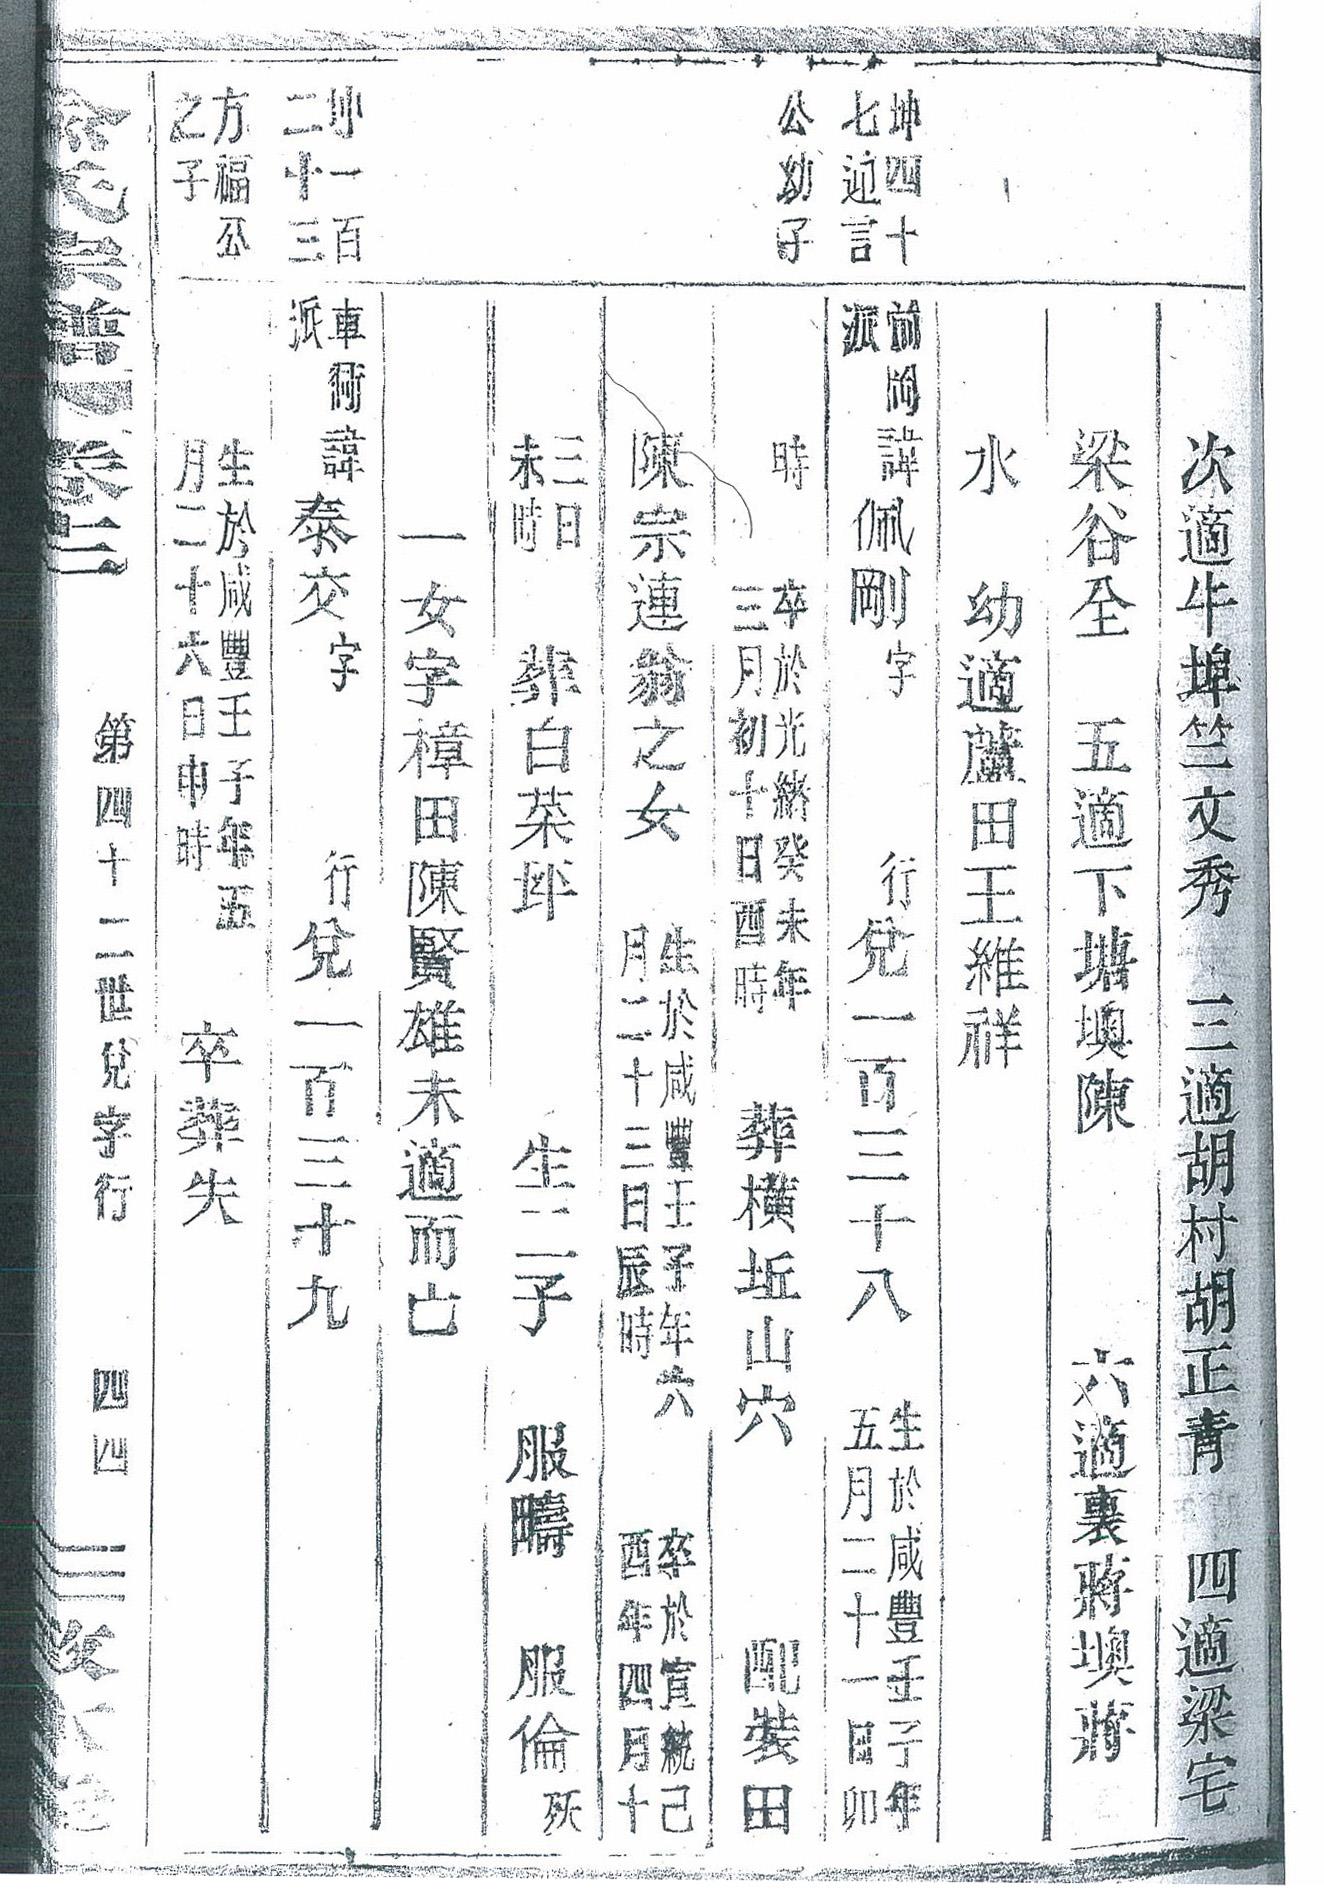 次適牛埠竺文秀 三適胡村胡正青 四適梁宅
梁谷全 五適下塘墺陳 六適裏蔣墺蔣
水 幼適蘆田王維祥
坤四十
七迺言
前岡
派
諱佩剛字 行兌一百三十八
生於咸豐壬子年
五月二十一日卯
公幼子
時
卒於光緒癸未年
三月初十日酉時
葬橫坵山穴 配裝田
陳宗連翁之女
生於咸豐壬子年六
月二十三日辰時
卒於宣統己
酉年四月十
三日
未時
葬白菜坵 生二子 服疇 服倫殀
一女字樟田陳賢雄未適而亡
坤一百
二十三
車衕
派
諱泰交字 行兌一百三十九
方福公
之子
生於咸豐壬子年五
月二十六日申時
卒葬失
宗譜 卷二 第四十二世兌字行 四四 三次